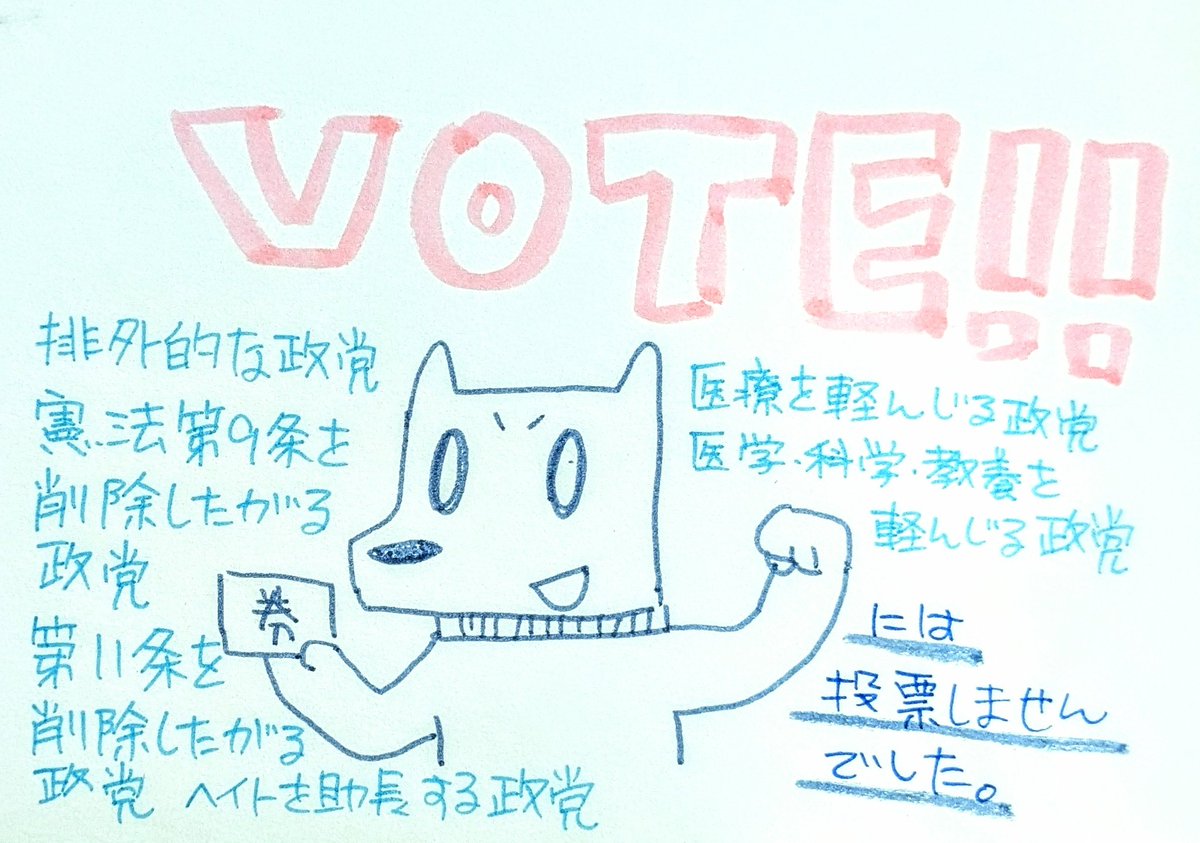 VOTE!!
排外的な政党
憲法第9条を
削除したがる
政党
第11条を
削除したがる
政党 ヘイトを助長する政党
券
医療を軽んじる政党
医学・科学・教養を
軽んじる政党
には
投票しません
でした。